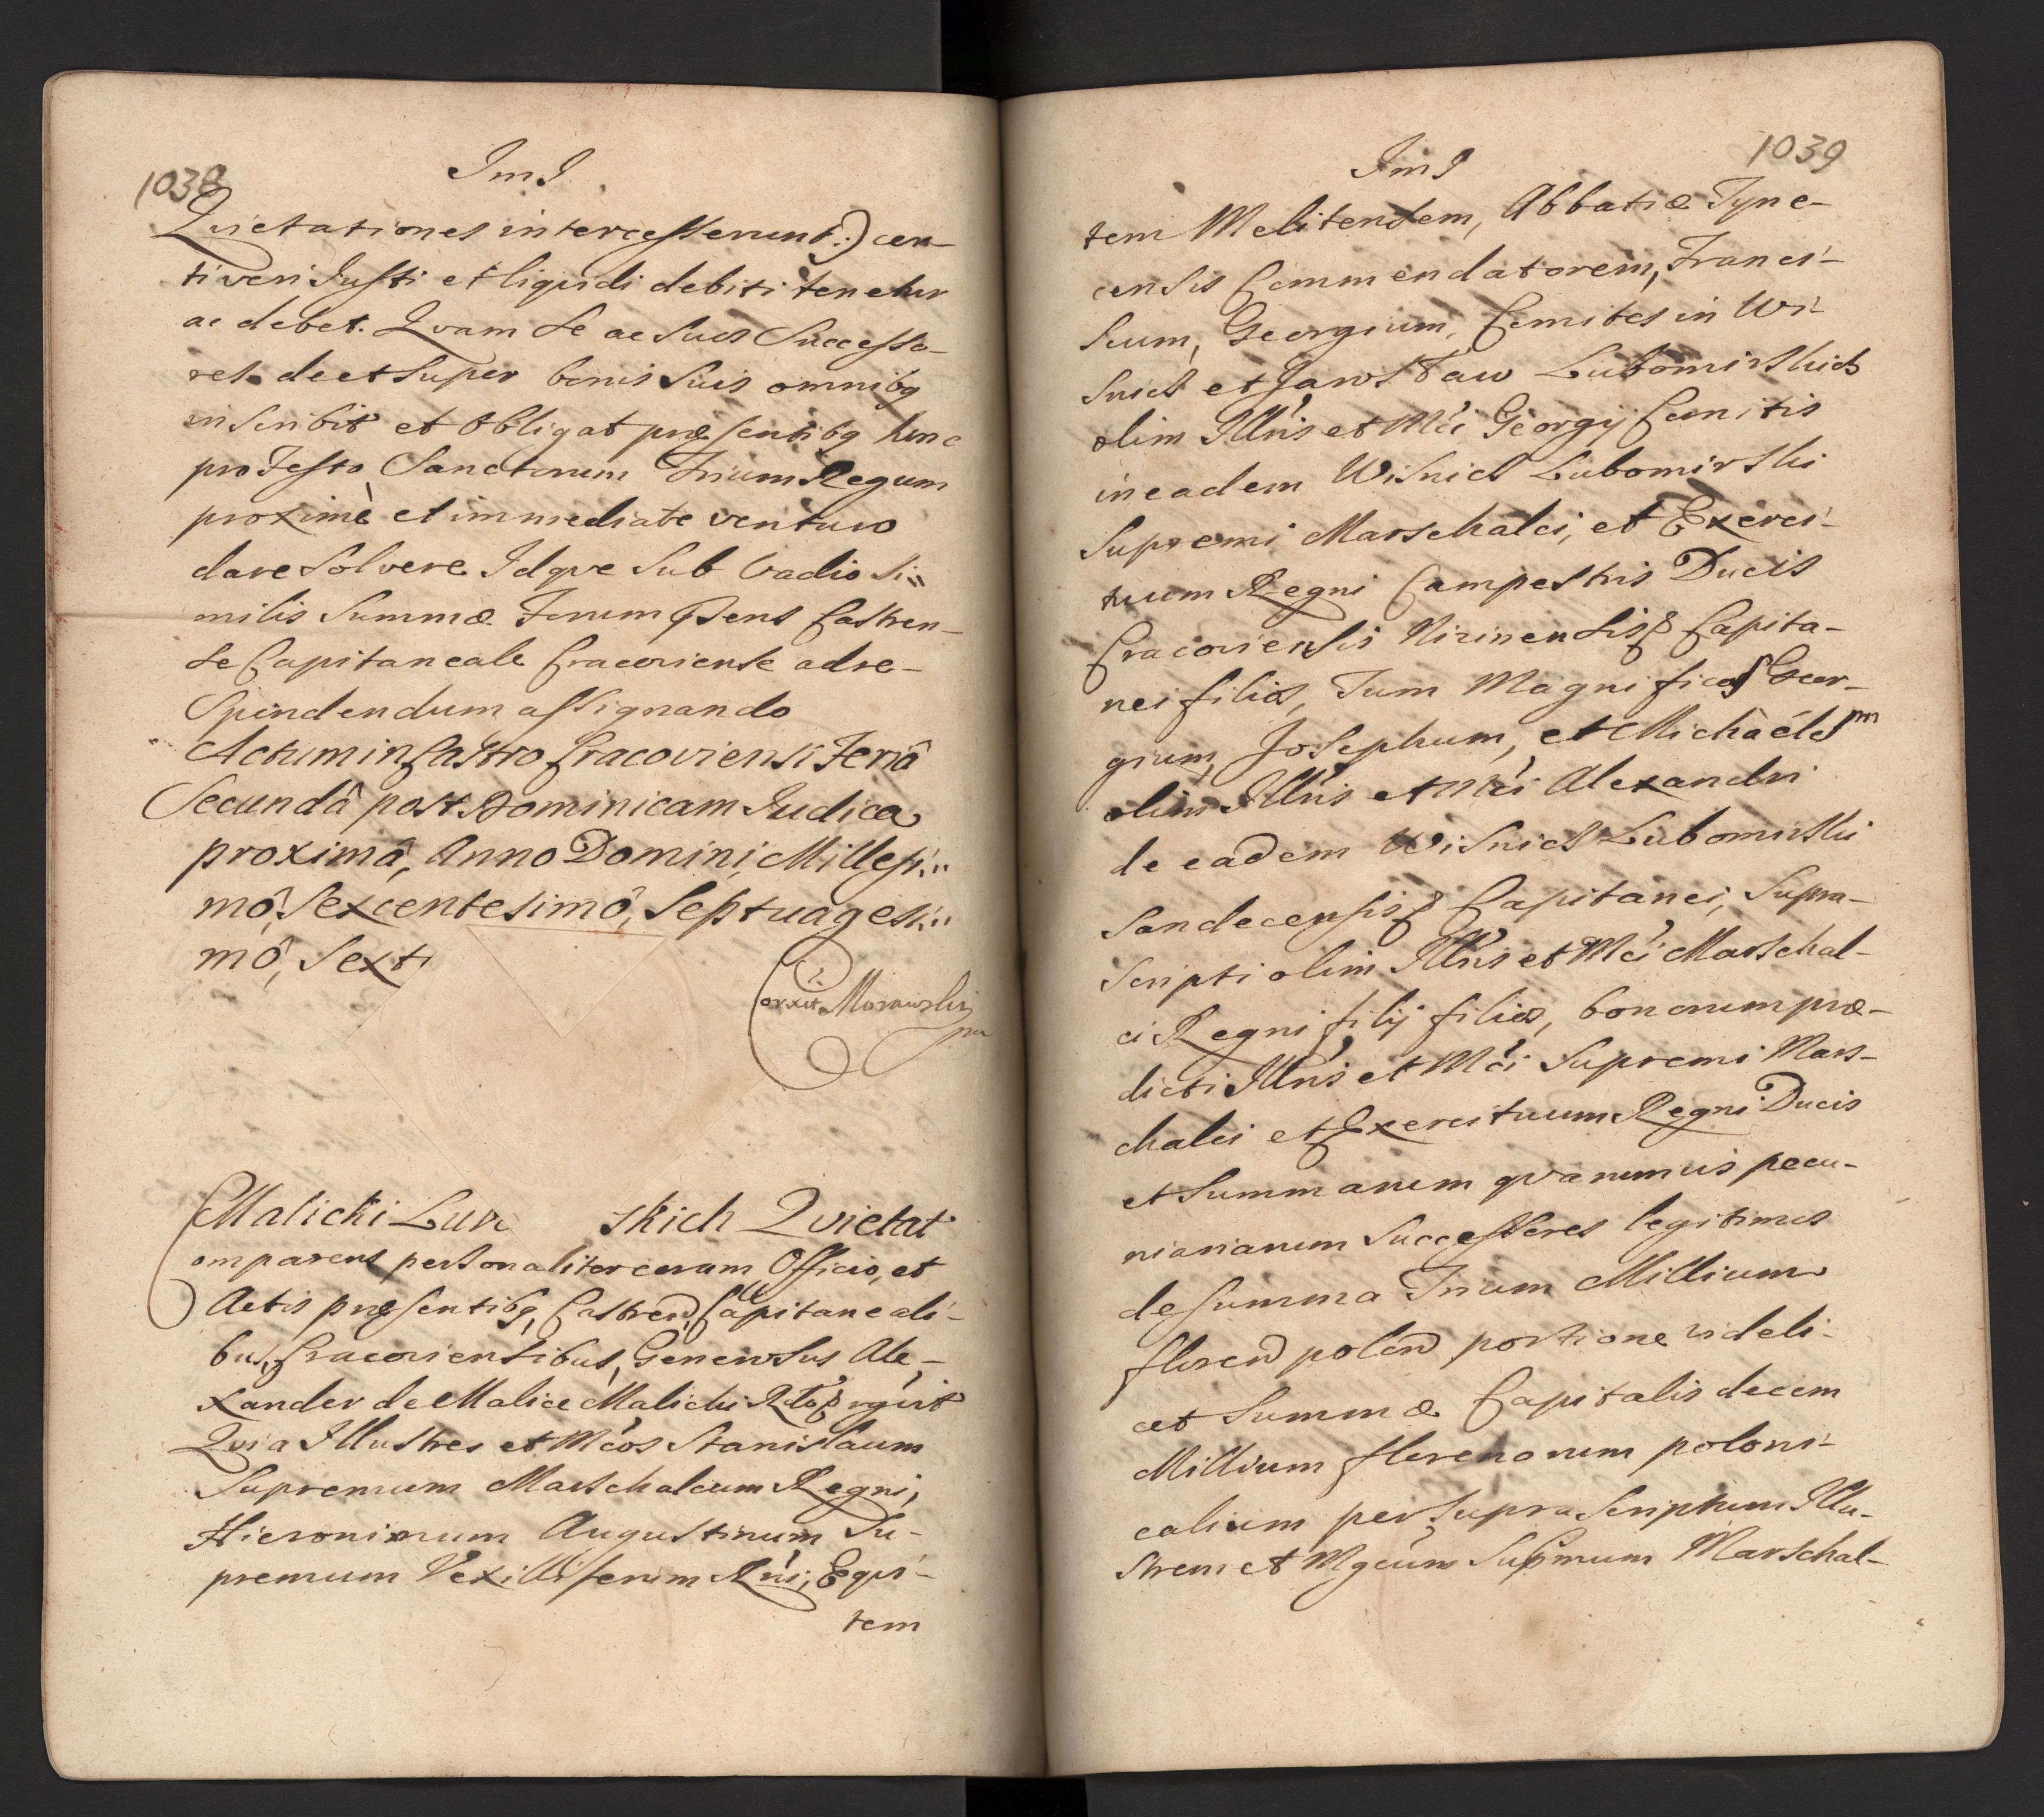 1038
ImI
Quietationes intercesserunt:) cer-
ti veri Justi et liquidi debiti tenetur
ac debet. Qvam se ac suos Successo-
res de et super bonis suis omnibq
inscribit et obligat præsentibq hinc
pro Festo Sanctorum Trium Regum
proximè et immediate venturo
dare solvere Idqve sub vadio si=
milis summæ Forum Psens Castren-
se Capitaneale Cracoviense ad re-
spondendum assignando
Actum in Castro Cracoviensi Feriâ
Secundâ post Dominicam Judica
proximâ, Anno Domini Millesi=
mô, Sexcentesimô, Septuagesi=
mô, Sexto
Corxit Morawski
mp
Malicki Lub skich Qvietat
Comparens personaliter coram Officio, et
Actis præsentibq, Castren, Capitaneali-
bus, Cracoviensibus, Generosus Ale-
xander de Malice Malicki
Qvia Illustres et Mcos Stanislaum
Supremum Marschalcum Regni,
Hieronimum Augustinum Su-
premum Vexilliferum Rni, Equi-
tem
1039
ImI
tem Melitensem, Abbatiæ Tyne-
censis Commendatorem, Franci-
scum, Georgium, Comites in Wi-
snicz et Jarosław Lubomirskich
olim Illris et Mci Georgij Comitis
in eadem Wisnicz Lubomirski
Supremi Marschalci, et Exerci-
tuum Regni Campestris Ducis
Cracoviensis Nizinensisq Capita-
nei filios, Tum Magnificos Geor-
gium, Josephum, et Michàélem
olim Illris et Mci Alexandri
de eadem Wisnicz Lubomirski
Sandecensisq Capitanei, Supra-
scripti olim Illris et Mci Marschal-
ci Regni filij filios, bonorum præ-
dicti Illris et Mci Supremi Mars-
chalci et Exercituum Regni Ducis
et Summarum qvarumvis pecu-
niariarum Successores legitimos
de summa Trium Millium
floren polon portione videli-
cet Summæ Capitalis decem
Millium florenorum poloni-
calium per supra scriptum Illu-
strem et Mgcum Supmum Marschal-